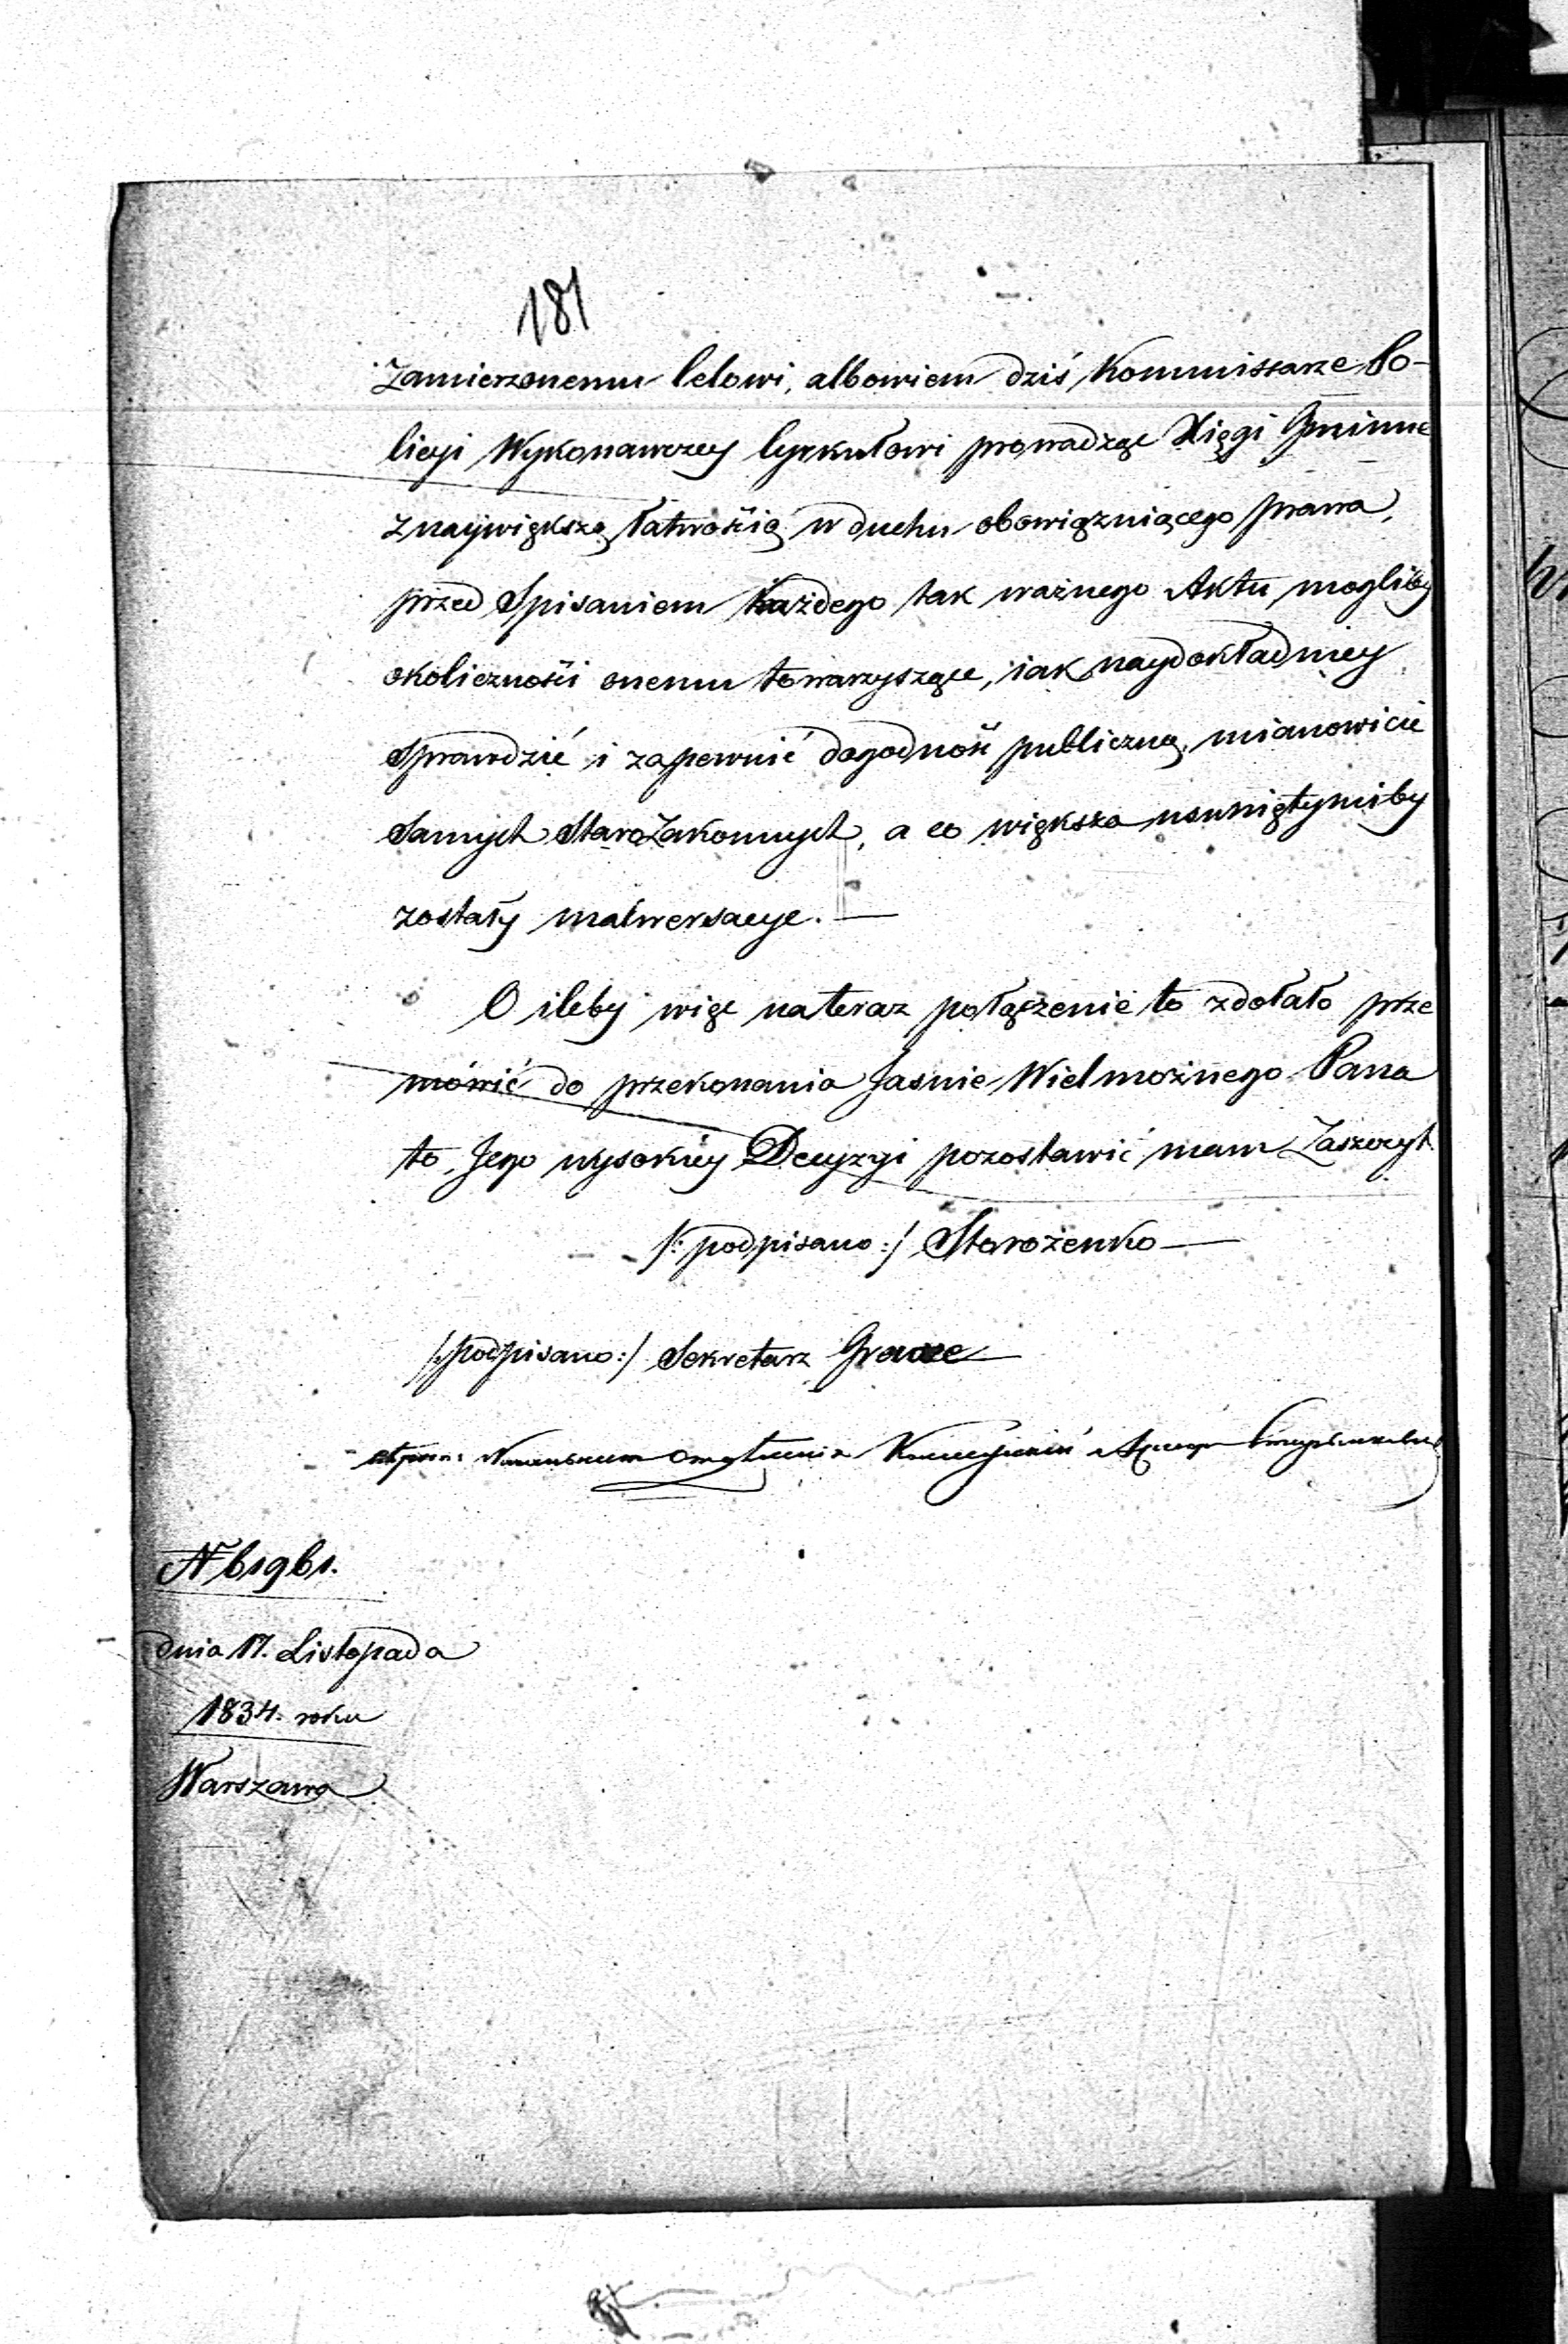 181
Zamierzonemu Celowi, albowiem dziś Kommissarze Po-
licyi Wykonawczey Cyrkułowi prowadząc Xięgi Gminne
z naywiększą łatwością w duchu obowiązuiącego prawa,
przed Spisaniem każdego tak ważnego Aktu, mogliby
okoliczności onemu towarzyszące, iak naydokładniey
sprawdzić i zapewnić dogodność publiczną, mianowicie
samych Starozakonnych, a co większa usuniętymiby
zostały malwersacye. —
O ileby więc na teraz połączenie to zdołało prze
mówić do przekonania Jaśnie Wielmożnego Pana
to Jego wysokiey Decyzyi pozostawić mam Zaszczyt.
/: podpisano :/ Storożenko —
/: podpisano :/ Sekretarz
N 61961.
dnia 17. Listopada
1834. roku
Warszawa